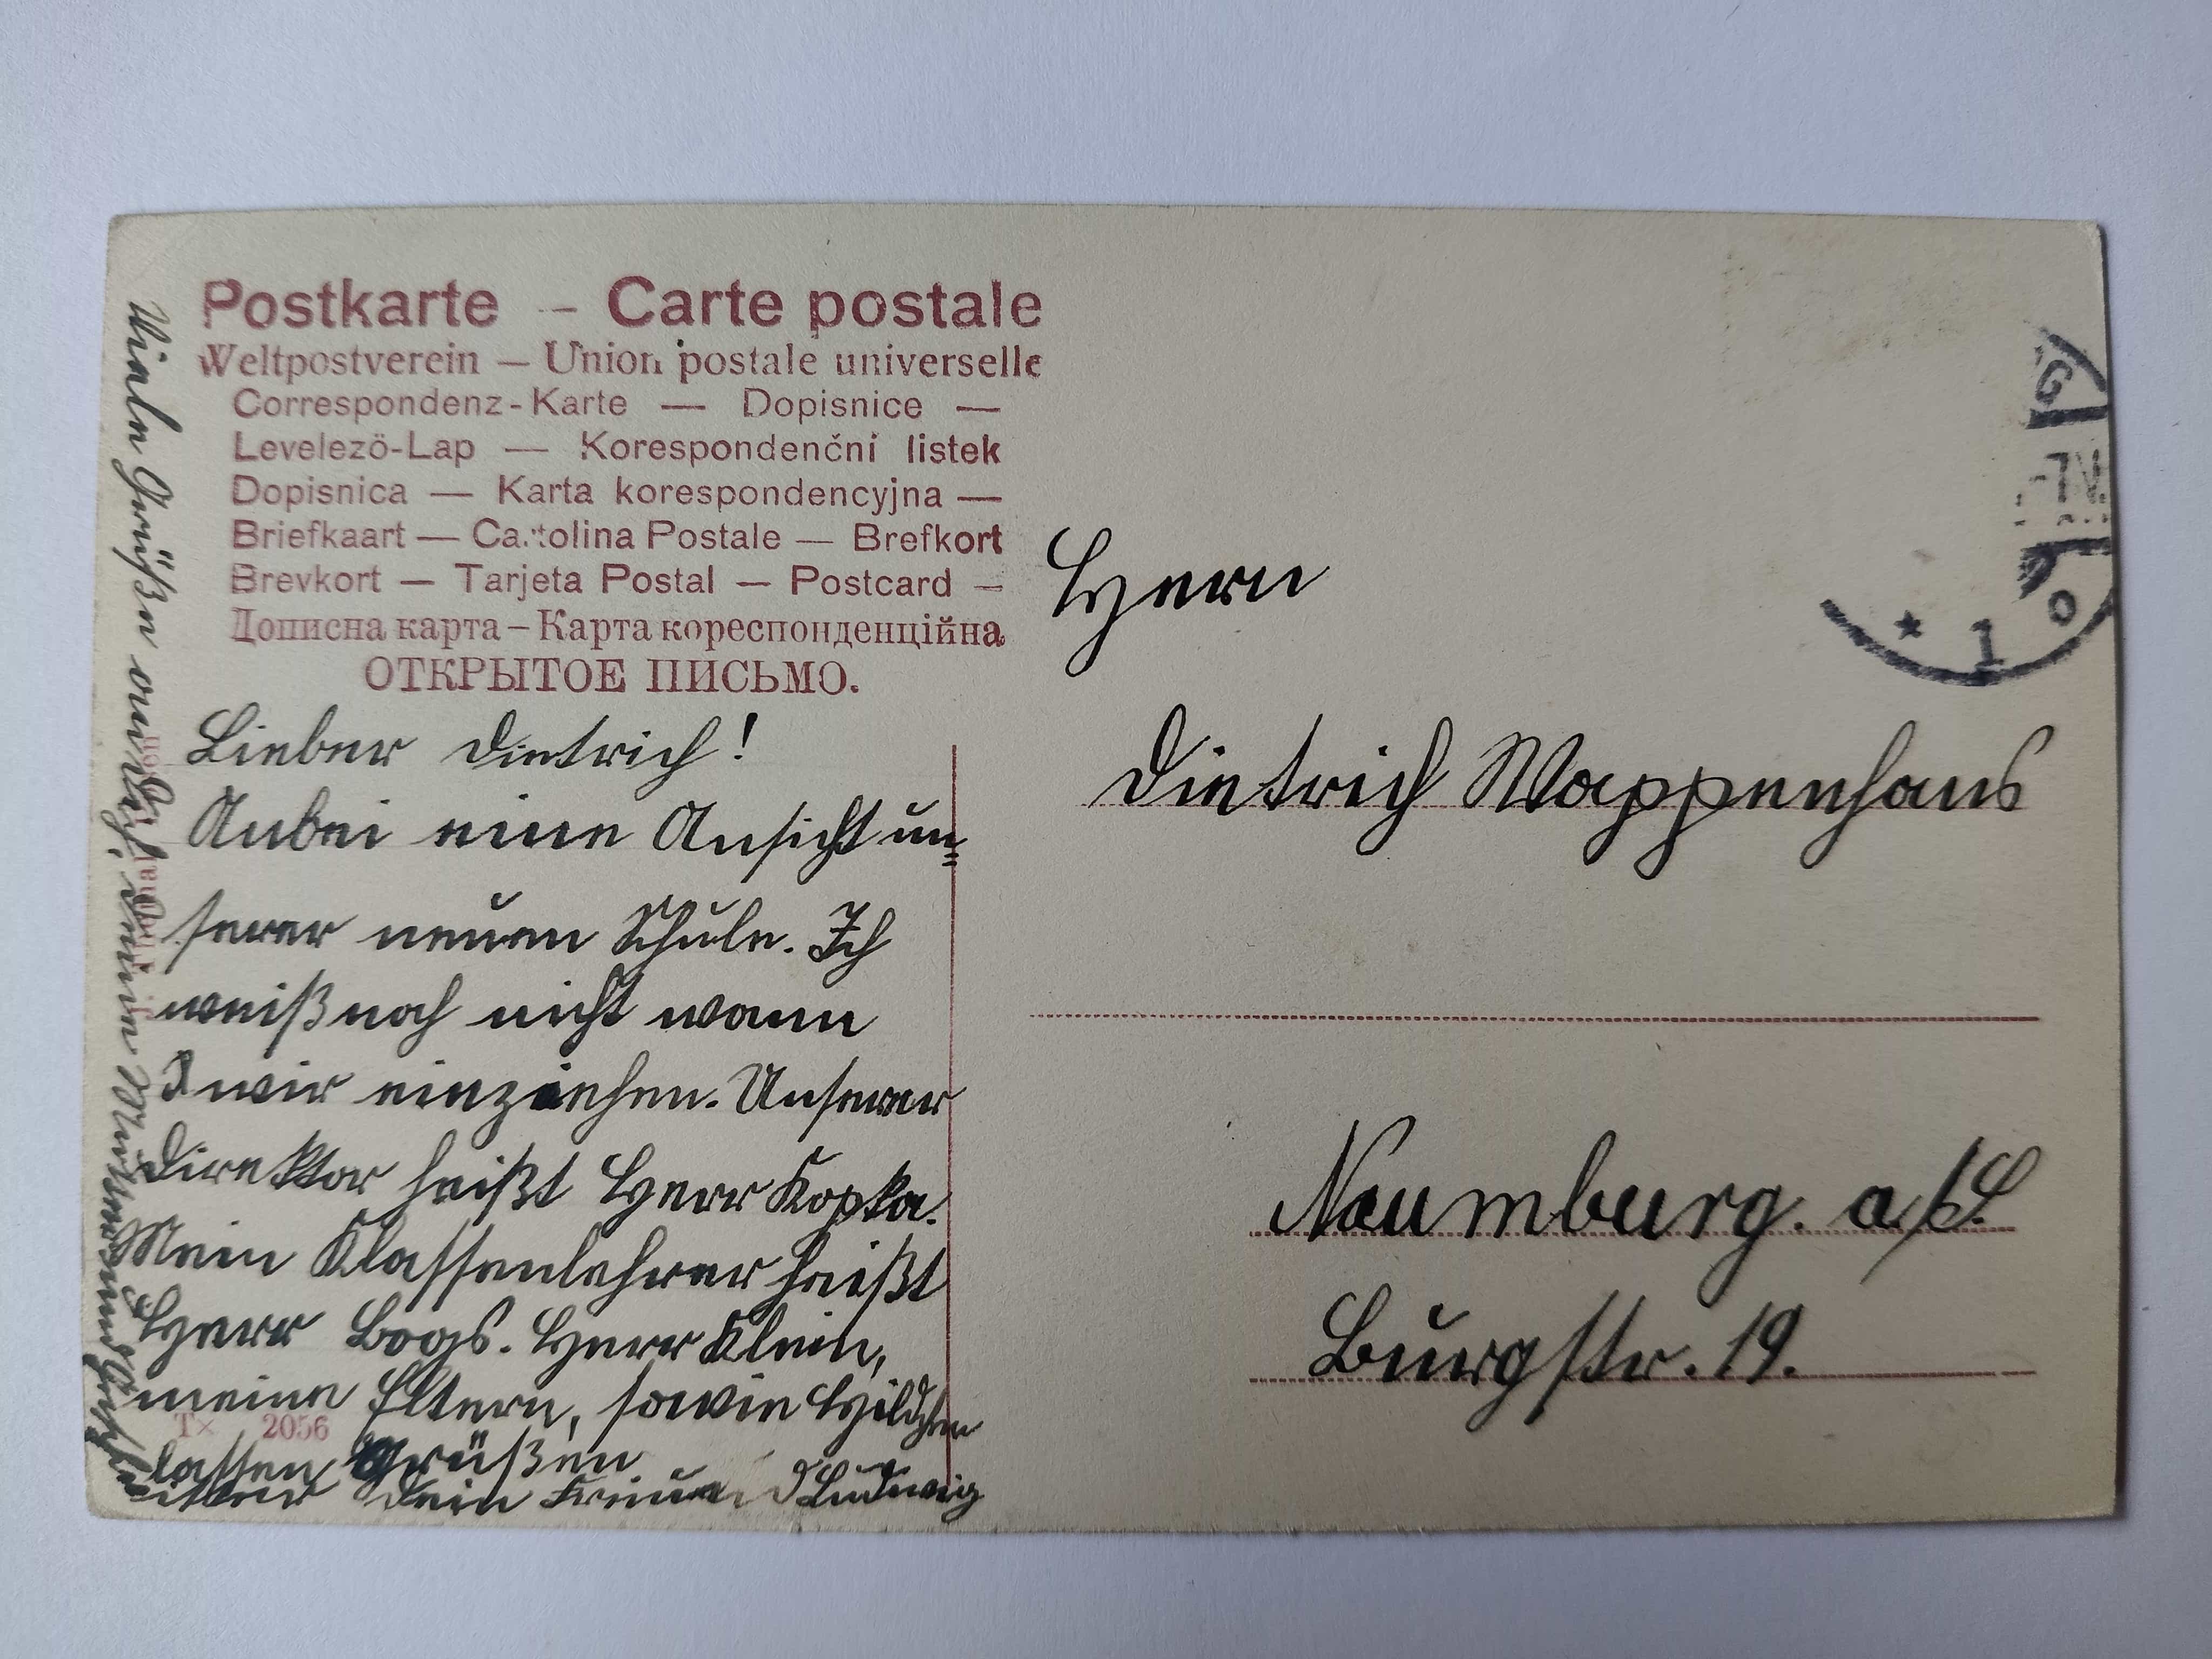 Postkarte – Carte postale
Weltpostverein – Union postale universelle
Correspondenz-Karte — Dopisnice —
Levelezö-Lap — Korespondenční listek
Dopisnica — Karta korespondencyjna —
Briefkaart — Cartolina Postale — Brefkort
Brevkort — Tarjeta Postal — Postcard —
Дописна карта – Карта кореспонденційна
ОТКРЫТОЕ ПИСЬМО.
Lieber Dietrich!
Anbei eine Ansicht un=
serer neuen Schule. Ich
weiß noch nicht wann
wir einziehen. Unserer
Direktor heißt Herr Kopka.
Mein Klassenlehrer heißt
Herr Bogs. Herr Klein,
meine Eltern, sowie Hildchen
lassen grüßen
Dein Freund Ludwig
Viele Grüße an Dich, Deine Mutter und
Tx 2056
Hern
Dietrich Wappenhans
Naumburg. a/S.
Burgstr. 19.
G
-7.V.
* 1 o